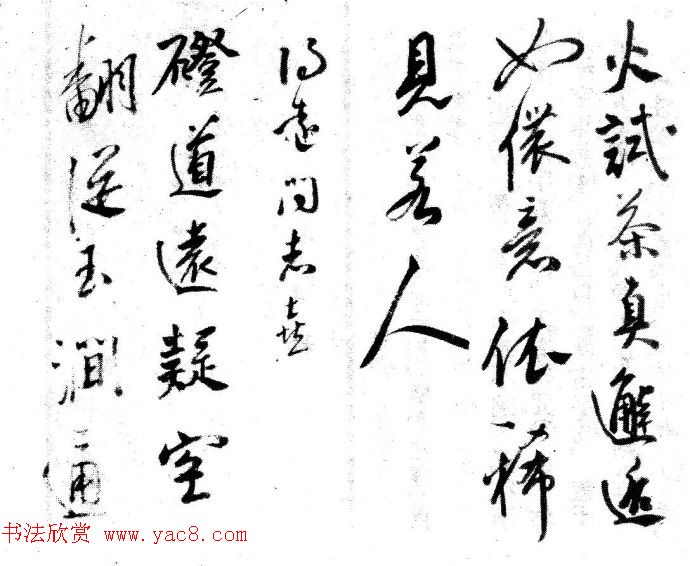 火試茶真邂逅
如儂意依稀
見若人
得遠問志喜
磴道遠疑空
翻從玉澗通
书法欣赏 www.yac8.com